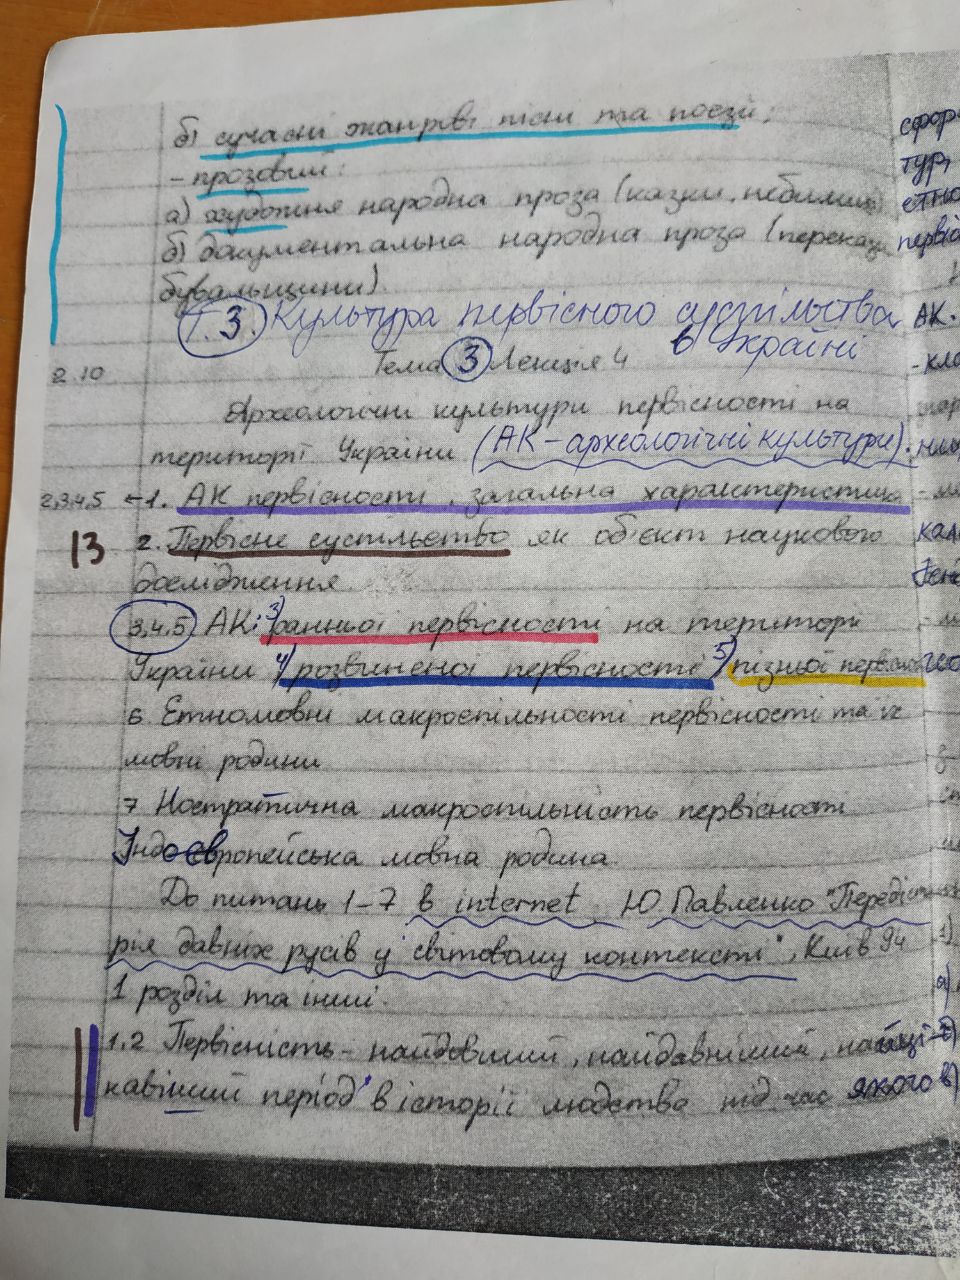 б) сучасні жанрові пісні та поезії;
- прозовий:
а) художня народна проза (казки, небилиці)
б) документальна народна проза (перекази
бувальщини)
Т.3. Культура первісного суспільства
в Україні
Тема 3 Лекція 4
2.10
Археологічні культури первісності на
території України (АК – археологічні культури).
2,3,4,5 1. АК первісности, загальна характеристика
13 2. Первісне суспільство як об'єкт наукового
дослідження
3,4,5 АК: 3) ранньої первісности на територі
України 4) розвиненої первісности 5) пізньої первісно
6 Етномовні макроспільності первісності та їх
мовні родини
7 Ностратична макроспільність первісності
Індоєвропейська мовна родина
До питань 1-7 в internet Ю Павленко "Передісто
рія давніх русів у світовому контексті", Київ 94
1 розділ та інші.
1.2 Первісність - найдовший, найдавніший, найці-
кавіший період в історії людства під час якого
сфор
тур,
етно
первіс
АК.
- кла